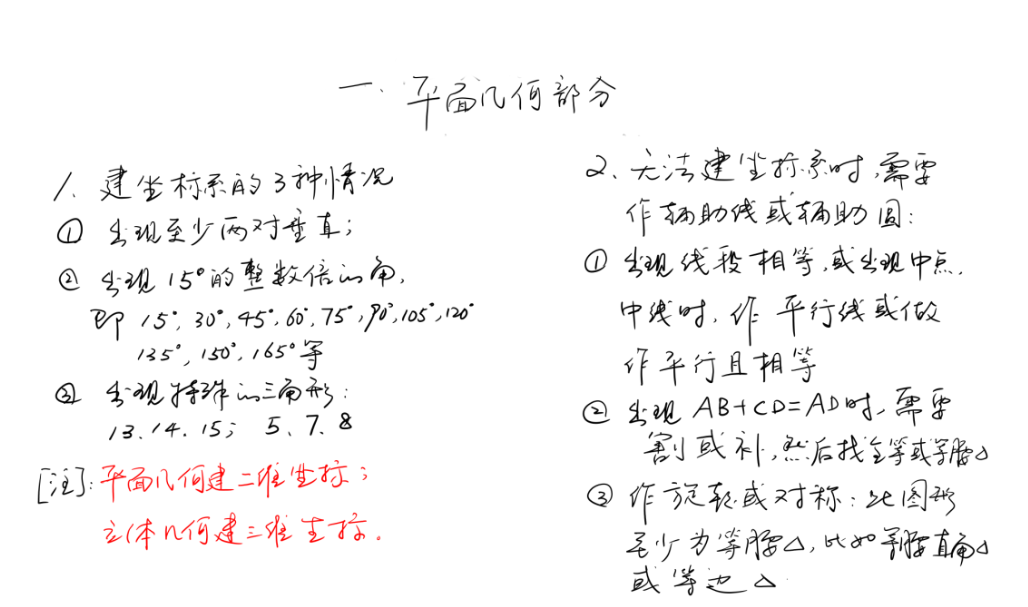 一、平面几何部分
1、建坐标系的3种情况
① 出现至少两对垂直;
② 出现15°的整数倍的角,
即 15°, 30°, 45°, 60°, 75°, 90°, 105°, 120°
135°, 150°, 165°等
③ 出现特殊的三角形:
13. 14. 15; 5、7、8
[注]: 平面几何建二维坐标;
立体几何建三维坐标。
2、无法建坐标系时,需要
作辅助线或辅助圆:
① 出现线段相等,或出现中点,
中线时,作平行线或做
作平行且相等
② 出现AB+CD=AD时,需要
割或补,然后找全等或等腰△
③ 作旋转或对称:此图形
至少为等腰△,比如等腰直角△
或等边△